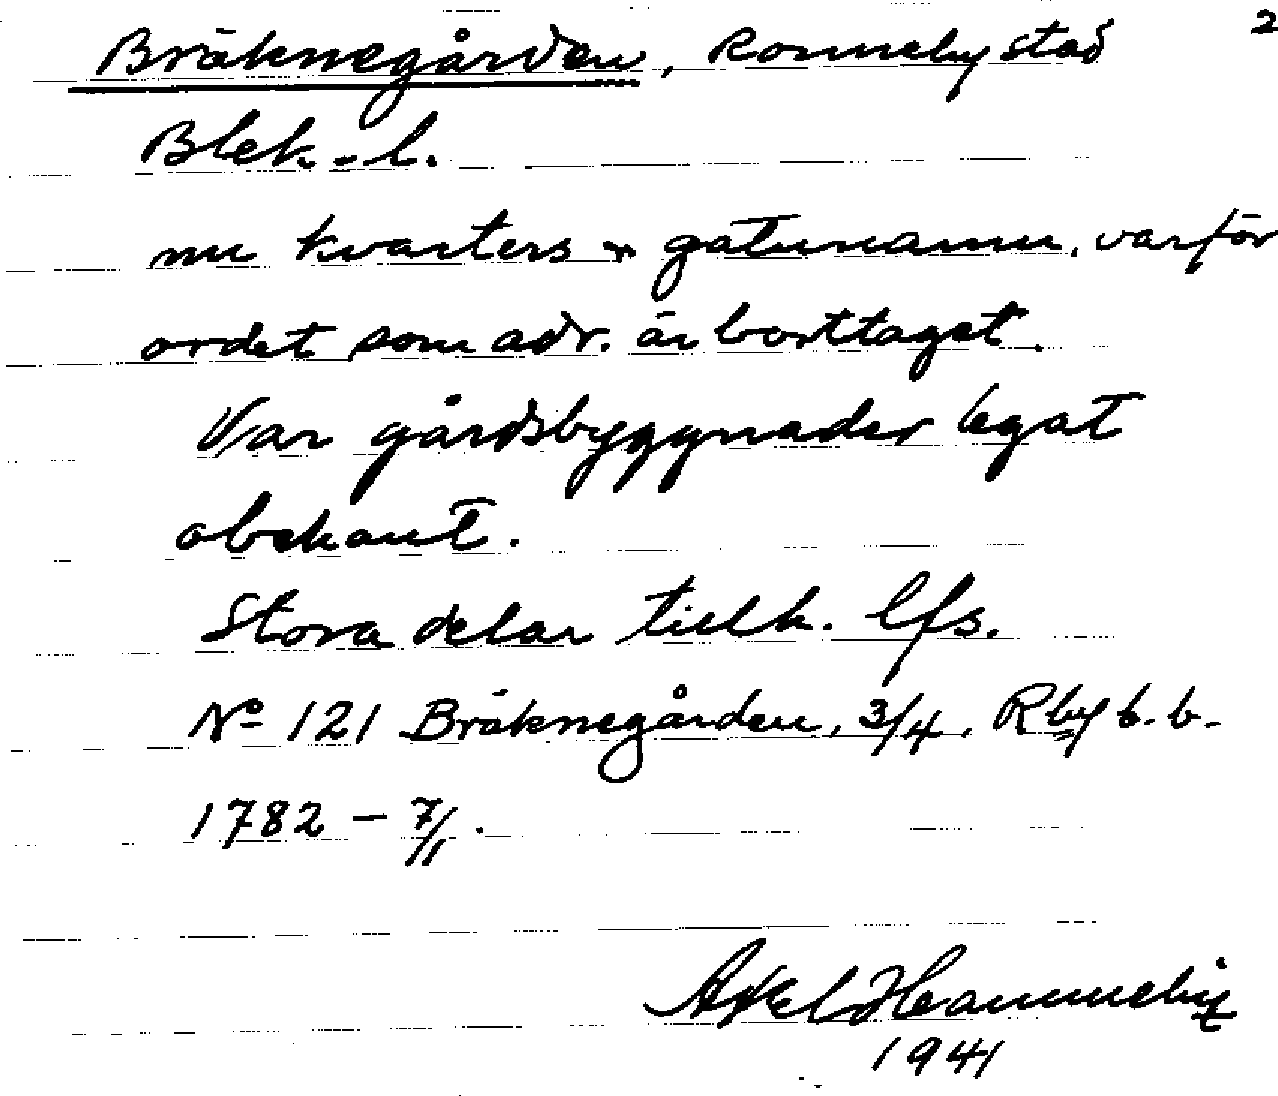 2
Bräknegården, Ronneby stad
Blek. l.
nu kvarters & gatunamn, varför
ordet som adr. är borttaget.
Var gårdsbyggnader legat
obekant.
Stora delar tillh. lfs.
No 121 Bräknegården, 3/4, Rby b.b.
1782 – 7/11.
Axel Hammeby
1941